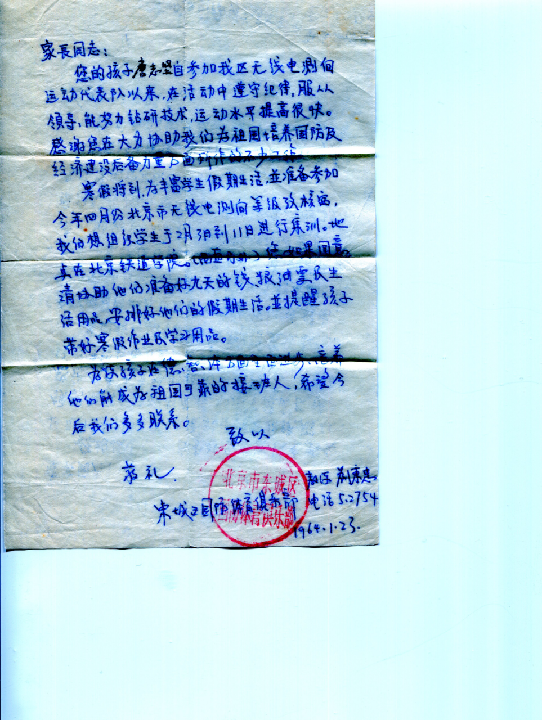 家長同志：
您的孩子唐志 自参加我区无线电测向
运动代表队以来，在活动中遵守纪律，服从
领导，能努力钻研技术，运动水平提高很快。
感谢您在大力协助我们为祖国培养国防及
经济建设后备力量方面所作的不少工作
寒假将到，为丰富学生假期生活，並准备参加
今年四月份北京市无线电测向等级 核 ，
我们想组织学生于2月3日到11日进行集训。地
点在北京铁道学院。 如果同意，
请协助他们准备好九天的钱粮油票及生
活用品，安排好他们的假期生活。並提醒孩子
带好寒假作业及学习用品。
为使孩子在德、智、体 方面全面进步，培养
他们能成为祖国可靠的接班人，希望今
后我们多多联系。
致以
敬礼
北京市东城区
国防体育俱乐部
教练
東城区国防体育俱乐部 电话5.2754
1964.1.23.